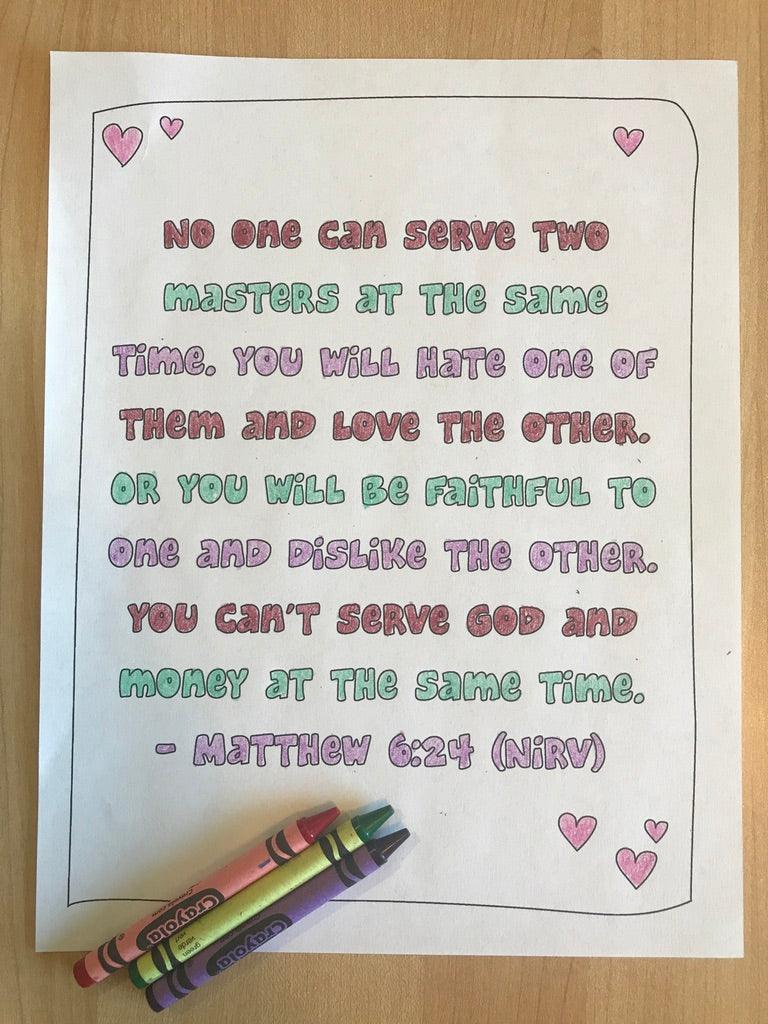 No one can serve two
masters at the same
time. You will hate one of
them and love the other.
Or you will be faithful to
one and dislike the other.
You can't serve God and
money at the same time.
- Matthew 6:24 (NIRV)
Crayola
Crayola
green
verde
vert